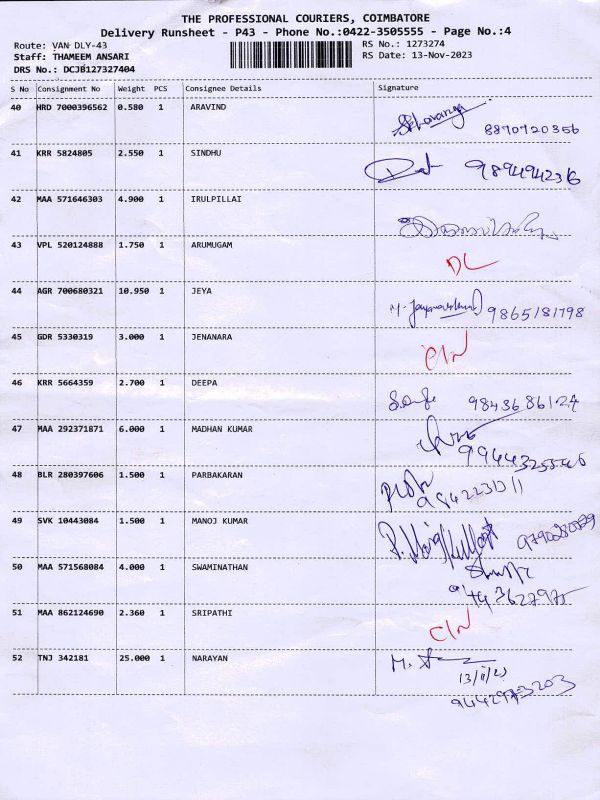 THE PROFESSIONAL COURIERS, COIMBATORE
Delivery Runsheet - P43 - Phone No.:0422-3505555 - Page No.:4
Route: VAN DLY-43 RS No.: 1273274
Staff: THAMEEM ANSARI RS Date: 13-Nov-2023
DRS No.: DCJB127327404
S No Consignment No Weight PCS Consignee Details Signature
40 HRD 7000396562 0.580 1 ARAVIND
8870720356
41 KRR 5824805 2.550 1 SINDHU
9894942316
42 MAA 571646303 4.900 1 IRULPILLAI
43 VPL 520124888 1.750 1 ARUMUGAM
DL
44 AGR 700680321 10.950 1 JEYA
9865181798
45 GDR 5330319 3.000 1 JENANARA
46 KRR 5664359 2.700 1 DEEPA
9843686124
47 MAA 292371871 6.000 1 MADHAN KUMAR
48 BLR 280397606 1.500 1 PARBAKARAN
49 SVK 10443084 1.500 1 MANOJ KUMAR
50 MAA 571568084 4.000 1 SWAMINATHAN
51 MAA 862124690 2.360 1 SRIPATHI
52 TNJ 342181 25.000 1 NARAYAN
13/11/23
9442973203